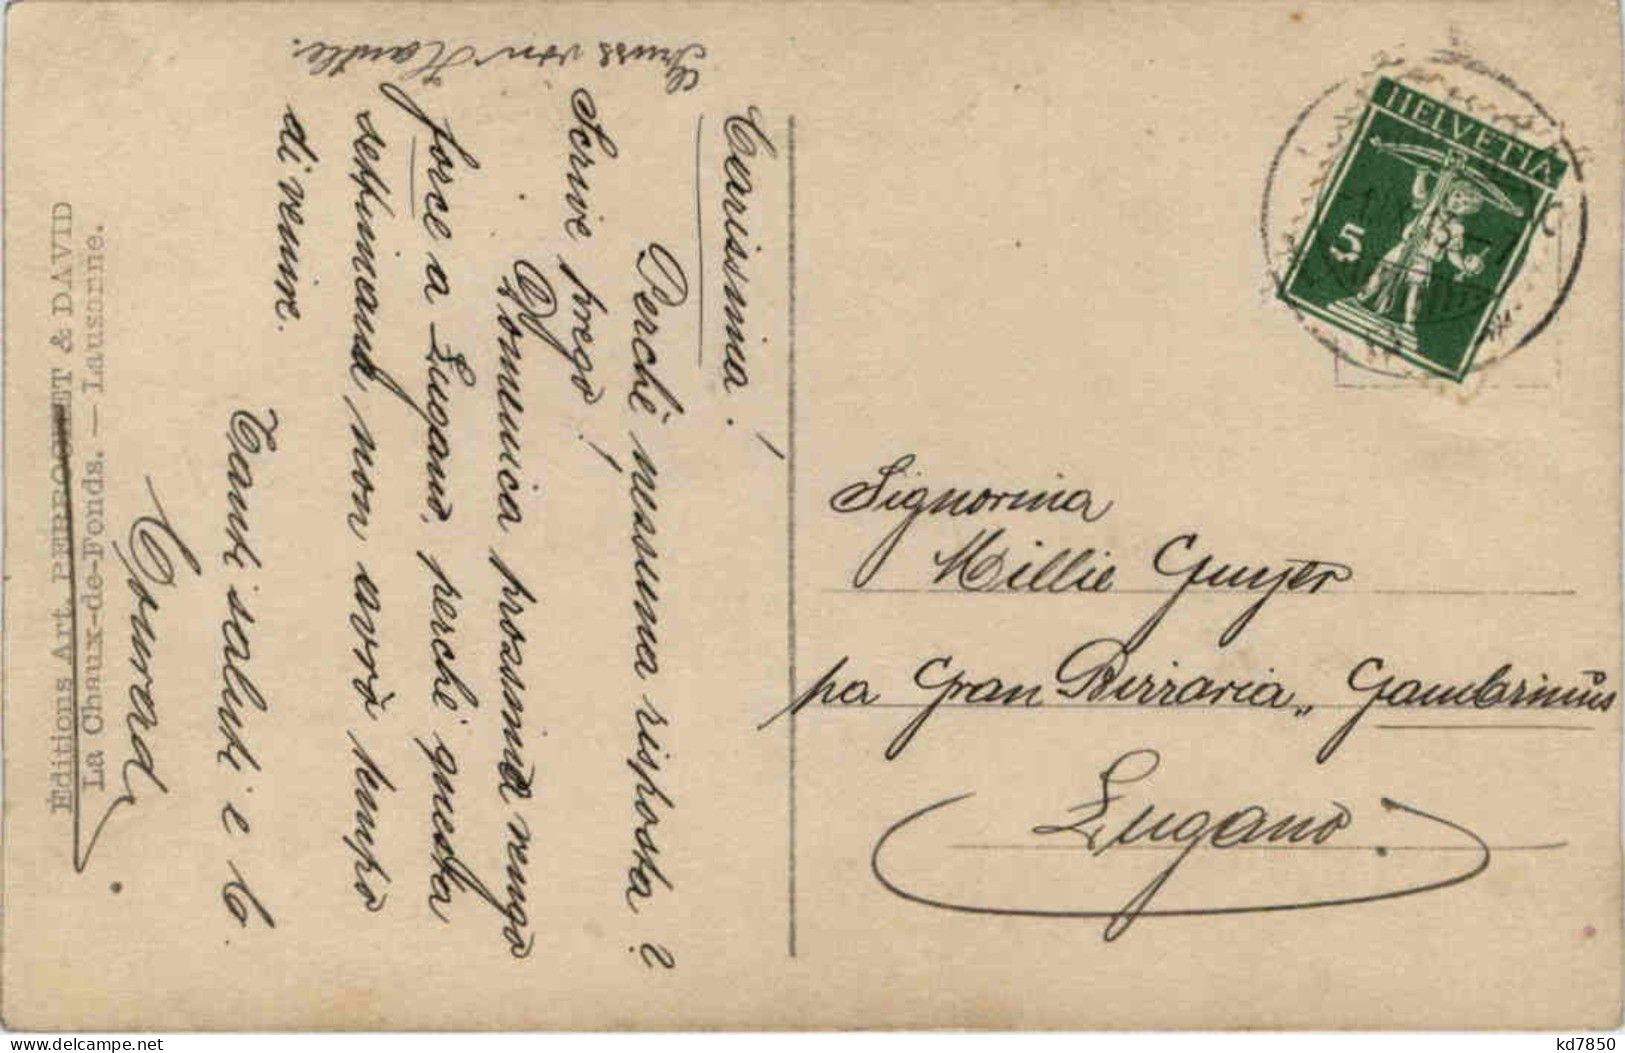 Gruss von
Carissima!
Perchè nessuna risposta?
Scrive prego!
Domenica prossima vengo
force a Lugano, perchè questa
settimana non avrò tempo
di venire.
Tanti saluti e b.
Conrad.
Editions Art. PERROCHET & DAVID
La Chaux-de-Fonds. — Lausanne.
HELVETIA
5
Signorina
Millie Gujer
pa Gran Birraria „Gambrinus
Lugano.
kd7850